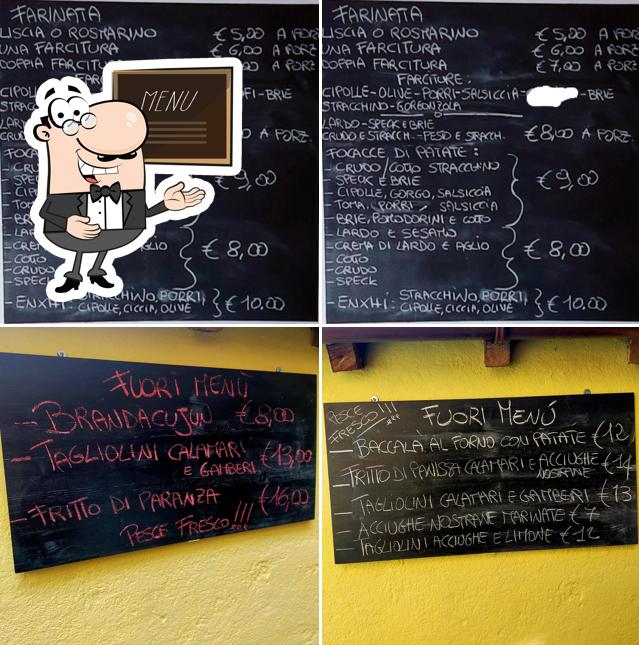 FARINATA
LISCIA O ROSMARINO € 5,00 A PORZ
UNA FARCITURA € 6,00 A PORZ
DOPPIA FARCITURA
MENU
€ 9,00
€ 8,00
- COTO
- CRUDO
- SPECK
- ENXHI: STRACCHINO, PORRI, } € 10,00
CIPOLLE, CICCIA, OLIVE
FARINATA
LISCIA O ROSMARINO € 5,00 A PORZ
UNA FARCITURA € 6,00 A PORZ
DOPPIA FARCITURA € 7,00 A PORZ
FARCITURE:
CIPOLLE-OLIVE-PORRI-SALSICCIA- -BRIE
STRACCHINO-GORGONZOLA
LARDO-SPECK E BRIE
CRUDO E STRACCH.-PESTO E STRACCH. € 8,00 A PORZ.
FOCACCE DI PATATE:
- CRUDO/COTTO STRACCHINO
- SPECK E BRIE € 9,00
- CIPOLLE, GORGO, SALSICCIA
- TOMA, PORRI, SALSICCIA
- BRIE, POMODORINI E COTTO
- LARDO E SESAMO
- CREMA DI LARDO E AGLIO € 8,00
- COTO
- CRUDO
- SPECK
- ENXHI: STRACCHINO, PORRI, } € 10,00
CIPOLLE, CICCIA, OLIVE
FUORI MENÙ
- BRANDACUJUN € 8,00
- TAGLIOLINI CALAMARI E GAMBERI € 13,00
- FRITTO DI PARANZA € 16,00
PESCE FRESCO!!!
PESCE FRESCO!!!
FUORI MENÙ
- BACCALÀ AL FORNO CON PATATE € 12
- FRITTO DI PANISSA CALAMARI E ACCIUGHE NOSTRANE € 14
- TAGLIOLINI CALAMARI E GAMBERI € 13
- ACCIUGHE NOSTRANE MARINATE € 7
- TAGLIOLINI ACCIUGHE E LIMONE € 12